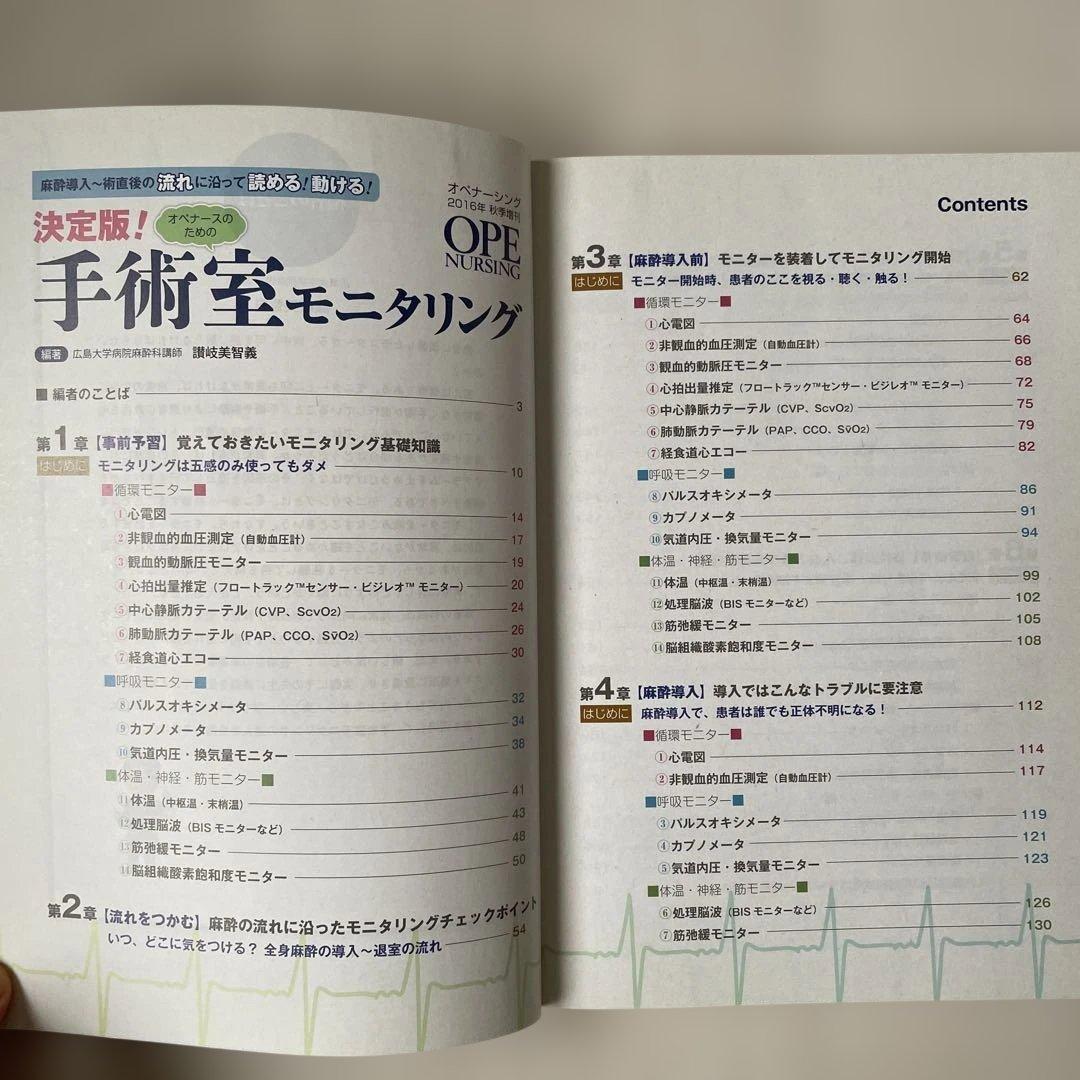 麻酔導入〜術直後の流れに沿って読める！動ける！
オペナーシング
2016年 秋季増刊
OPE
NURSING
決定版！
オペナースの
ための
手術室モニタリング
編著 広島大学病院麻酔科講師 讃岐美智義
■ 編者のことば 3
第1章【事前予習】覚えておきたいモニタリング基礎知識
はじめに モニタリングは五感のみ使ってもダメ 10
■循環モニター■
①心電図 14
②非観血的血圧測定（自動血圧計） 17
③観血的動脈圧モニター 19
④心拍出量推定（フロートラック™センサー・ビジレオ™ モニター） 20
⑤中心静脈カテーテル（CVP、ScvO2） 24
⑥肺動脈カテーテル（PAP、CCO、Sv̄O2） 26
⑦経食道心エコー 30
■呼吸モニター■
⑧パルスオキシメータ 32
⑨カプノメータ 34
⑩気道内圧・換気量モニター 38
■体温・神経・筋モニター■
⑪体温（中枢温・末梢温） 41
⑫処理脳波（BISモニターなど） 43
⑬筋弛緩モニター 48
⑭脳組織酸素飽和度モニター 50
第2章【流れをつかむ】麻酔の流れに沿ったモニタリングチェックポイント
いつ、どこに気をつける？ 全身麻酔の導入〜退室の流れ 54
Contents
第3章【麻酔導入前】モニターを装着してモニタリング開始
はじめに モニター開始時、患者のここを視る・聴く・触る！ 62
■循環モニター■
①心電図 64
②非観血的血圧測定（自動血圧計） 66
③観血的動脈圧モニター 68
④心拍出量推定（フロートラック™センサー・ビジレオ™ モニター） 72
⑤中心静脈カテーテル（CVP、ScvO2） 75
⑥肺動脈カテーテル（PAP、CCO、Sv̄O2） 79
⑦経食道心エコー 82
■呼吸モニター■
⑧パルスオキシメータ 86
⑨カプノメータ 91
⑩気道内圧・換気量モニター 94
■体温・神経・筋モニター■
⑪体温（中枢温・末梢温） 99
⑫処理脳波（BISモニターなど） 102
⑬筋弛緩モニター 105
⑭脳組織酸素飽和度モニター 108
第4章【麻酔導入】導入ではこんなトラブルに要注意
はじめに 麻酔導入で、患者は誰でも正体不明になる！ 112
■循環モニター■
①心電図 114
②非観血的血圧測定（自動血圧計） 117
■呼吸モニター■
③パルスオキシメータ 119
④カプノメータ 121
⑤気道内圧・換気量モニター 123
■体温・神経・筋モニター■
⑥処理脳波（BISモニターなど） 126
⑦筋弛緩モニター 130